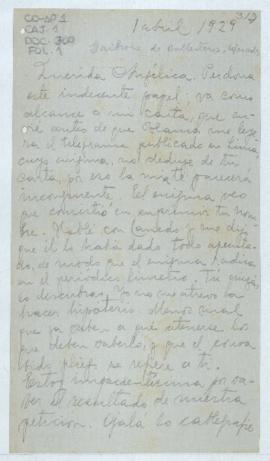 CO-AP 1
CAJ. 1
DOC. 300
FOL. 1
1 abril 1929
Querida Angélica. Perdona
este indecente papel; va como
alcance a mi carta, que en-
vié antes de que Blanca me leye-
ra el telegrama publicado en Lima,
cuyo enigma, no deduje de tu
carta, por eso la mía te parecerá
incongruente. El enigma veo
que consistió en suprimir tu nom-
bre. Hablé con y me dijo
que él lo había dado todo apunta-
do, de modo que el enigma radica
en el periódico limeño. Tú quizás
lo descubras. Yo no me atrevo a
hacer hipótesis. Menos mal
que ya saben a qué atenerse los
que deben saberlo, y que el consa-
bido pliego se refiere a ti.
Estoy impacientísima por sa-
ber el resultado de nuestra
petición. Ojalá lo cablegrafíe